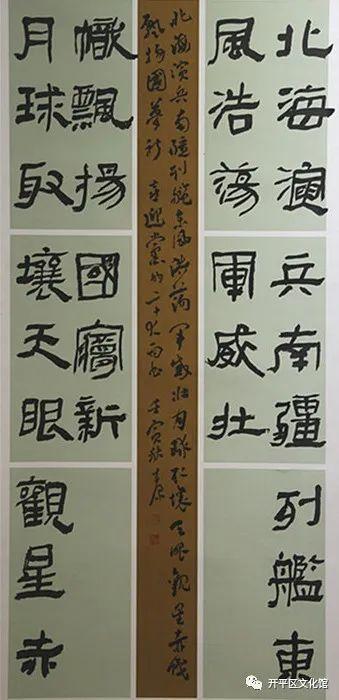 北海演兵南疆列艦東
風浩蕩軍威壯
北海演兵南疆列艦東風浩蕩軍威壯月球取壤天眼觀星赤幟
飄揚國夢新 喜迎黨的二十大而書 壬寅
月球取壤天眼觀星赤
幟飄揚國夢新
开平区文化馆